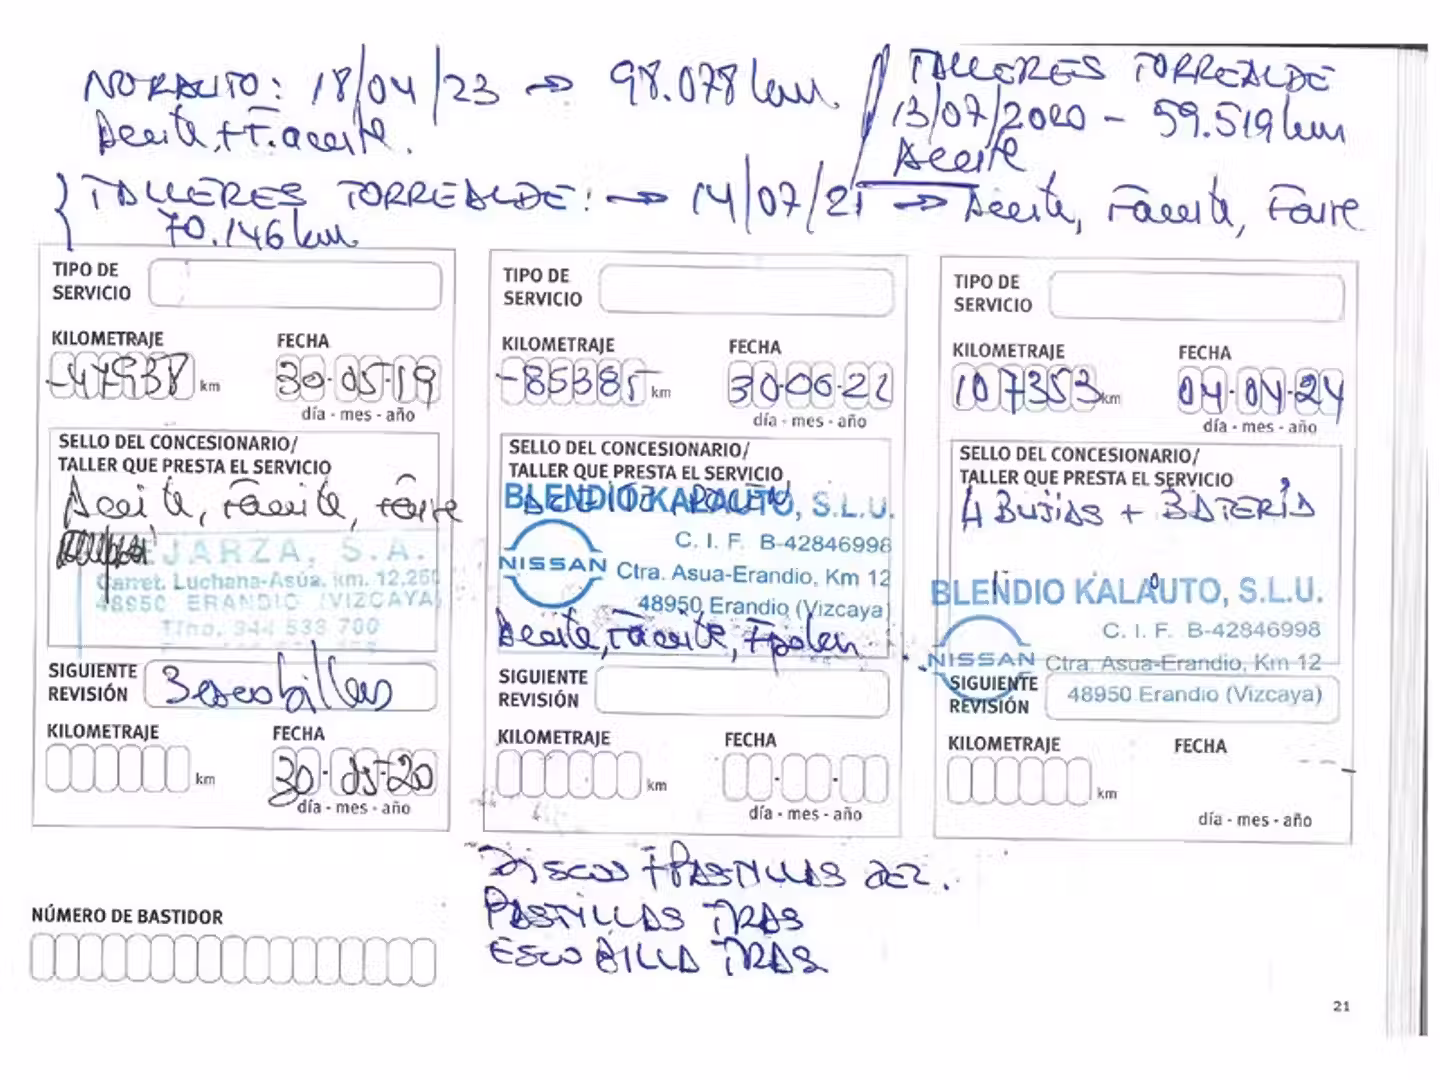 NORAUTO: 18/04/23 → 98.078 km.
Aceite + F. aceite.
TALLERES TORREALDE
13/07/2020 - 59.519 km
Aceite
TALLERES TORREALDE: → 14/07/21 → Aceite, Faceite, Faire
70.146 km
TIPO DE
SERVICIO
KILOMETRAJE FECHA
-47938 km 30-05-19
día - mes - año
SELLO DEL CONCESIONARIO/
TALLER QUE PRESTA EL SERVICIO
Aceite, Faceite, Faire
JARZA, S.A.
Carret. Luchana-Asúa, km. 12,250
48950 ERANDIO (VIZCAYA)
Tfno. 944 533 700
SIGUIENTE
REVISIÓN
3 escobillas
KILOMETRAJE FECHA
km 30-05-20
día - mes - año
TIPO DE
SERVICIO
KILOMETRAJE FECHA
-85385 km 30-06-22
día - mes - año
SELLO DEL CONCESIONARIO/
TALLER QUE PRESTA EL SERVICIO
BLENDIO KALAUTO, S.L.U.
C. I. F. B-42846998
NISSAN Ctra. Asua-Erandio, Km 12
48950 Erandio (Vizcaya)
Aceite, Faceite, Fpolen
SIGUIENTE
REVISIÓN
KILOMETRAJE FECHA
km
día - mes - año
TIPO DE
SERVICIO
KILOMETRAJE FECHA
107353 km 04-04-24
día - mes - año
SELLO DEL CONCESIONARIO/
TALLER QUE PRESTA EL SERVICIO
4 BUJIAS + BATERIA
BLENDIO KALAUTO, S.L.U.
C. I. F. B-42846998
NISSAN Ctra. Asua-Erandio, Km 12
48950 Erandio (Vizcaya)
SIGUIENTE
REVISIÓN
KILOMETRAJE FECHA
km
día - mes - año
DISCOS + PASTILLAS DEL.
PASTILLAS TRAS
ESCOBILLA TRAS
NÚMERO DE BASTIDOR
21